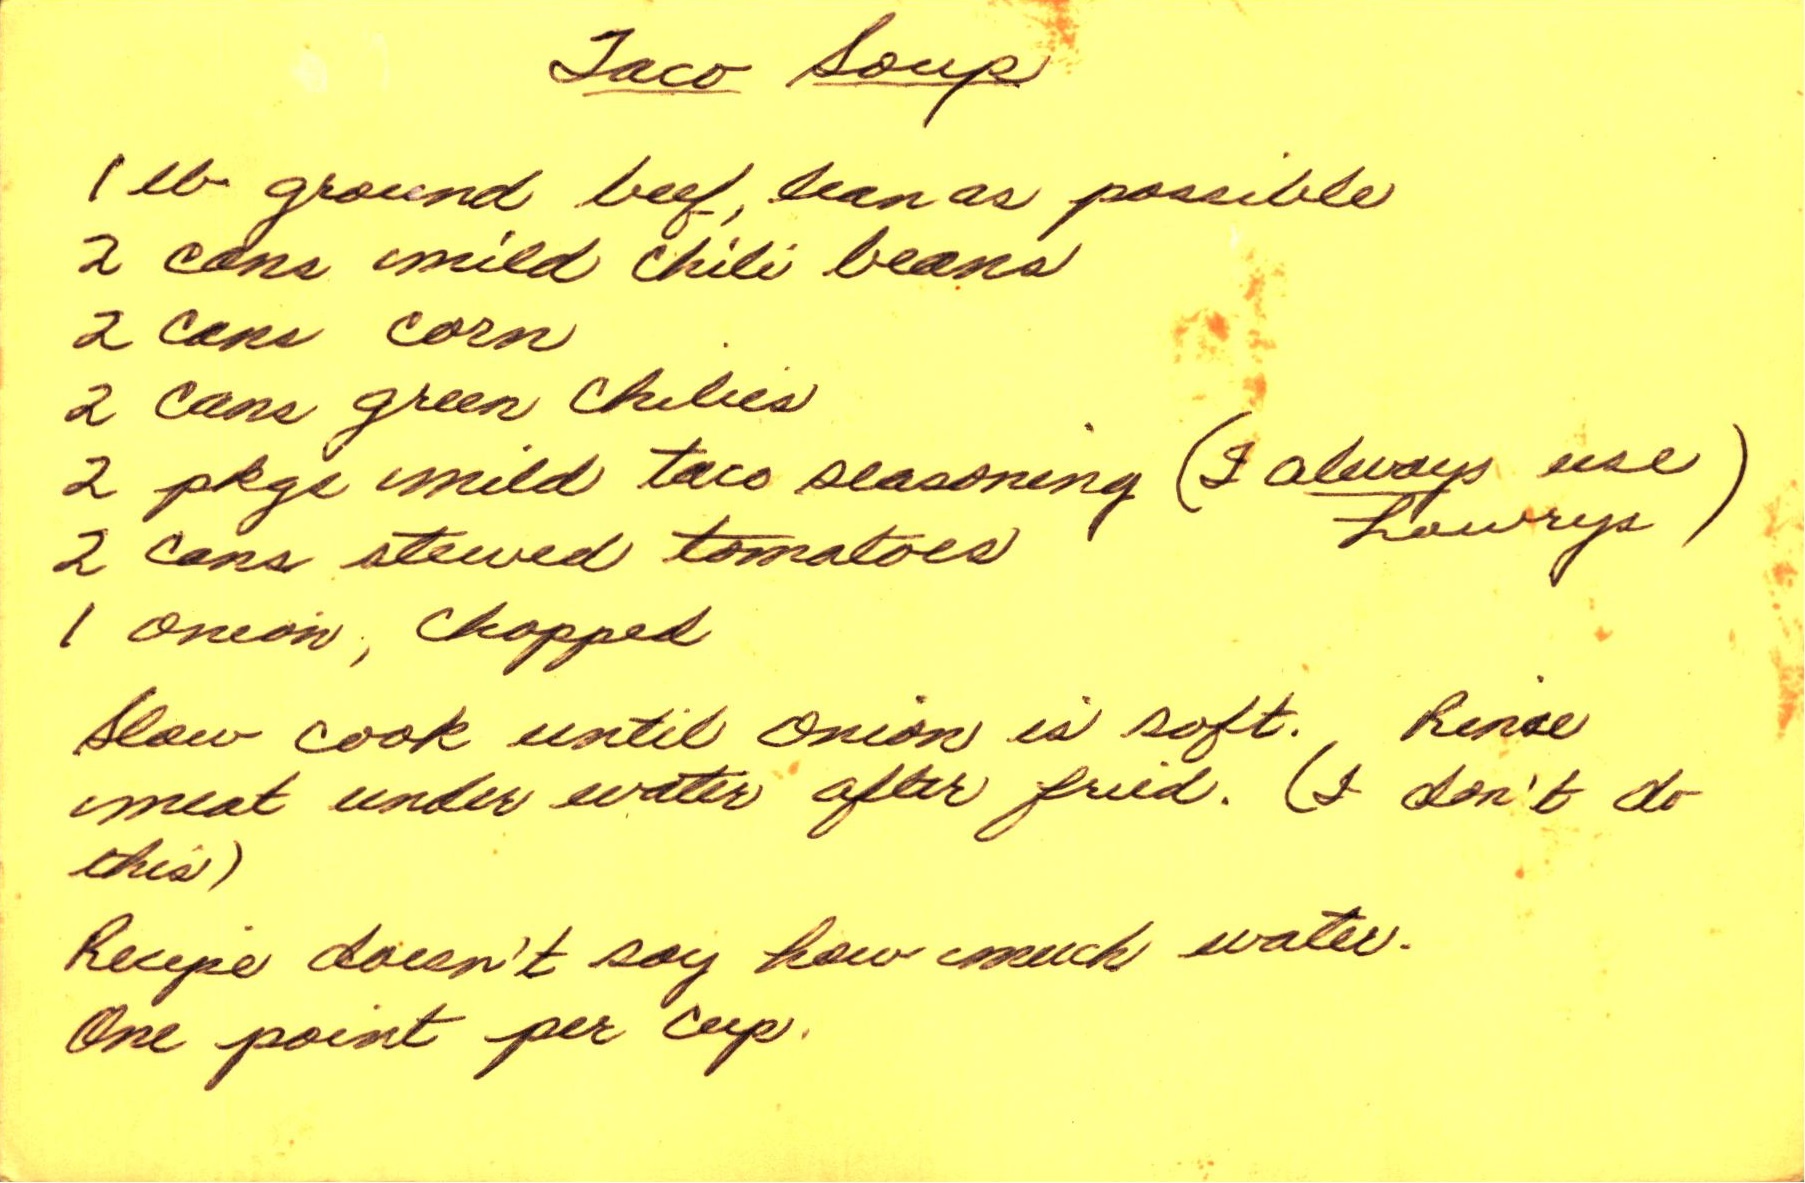 Taco Soup
1 lb ground beef, lean as possible
2 cans mild chili beans
2 cans corn
2 cans green chilies
2 pkgs mild taco seasoning (I always use
Lowrys)
2 cans stewed tomatoes
1 onion, chopped
Slow cook until onion is soft. Rinse
meat under water after fried. (I don't do
this)
Recipe doesn't say how much water.
One point per cup.